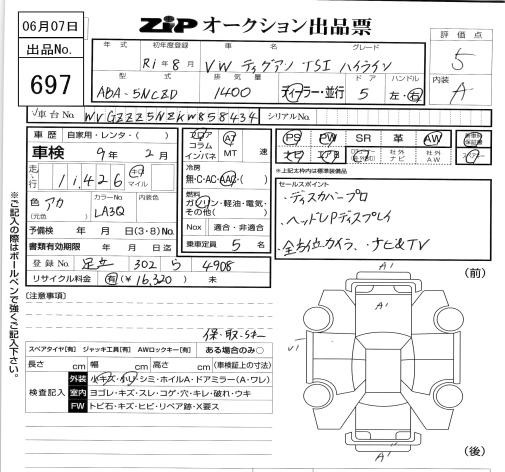 06月07日
出品No.
697
ZiP オークション出品票
評価点
5
内装
A
年式 初年度登録 車名 グレード
R1年8月 VW ティグアン TSI ハイライン
型式 排気量 ドア ハンドル
ABA-5NCZD 1400 ディーラー・並行 5 左・右
√車台No. WVGZZZ5NZKW858434 シリアルNo.
車歴 自家用・レンタ・( )
車検 9年 2月
走行 11,426 キロ マイル
色 アカ (元色)
カラーNo. LA3Q 内装色
予備検 年 月 日(3・8)No.
書類有効期限 年 月 日
登録No. 足立 302 ら 4908
リサイクル料金 有(¥16,320) 未
フロア コラム インパネ
AT MT 速
冷房
無・C・AC・AAC・( )
燃料
ガソリン・軽油・電気・その他( )
Nox 適合・非適合
乗車定員 5 名
PS PW SR 革 AW
ナビ AW
※上記太枠内は標準装備品
セールスポイント
・ディスカバープロ
・ヘッドUPディスプレイ
・全方位カメラ、ナビ&TV
※ご記入の際はボールペンで強くご記入下さい。
[注意事項]
保・取・Sキー
スペアタイヤ[有] ジャッキ工具[有] AWロックキー[有] ある場合のみ○
長さ cm 幅 cm 高さ cm (車検証上の寸法)
検査記入
外装 小キズ・小U・シミ・ホイルA・ドアミラー(A・ワレ)
室内 ヨゴレ・キズ・スレ・コゲ・穴・キレ・破れ・ウキ
FW トビ石・キズ・ヒビ・リペア跡・X要ス
(前)
A'
A'
V1
A'
A''
(後)